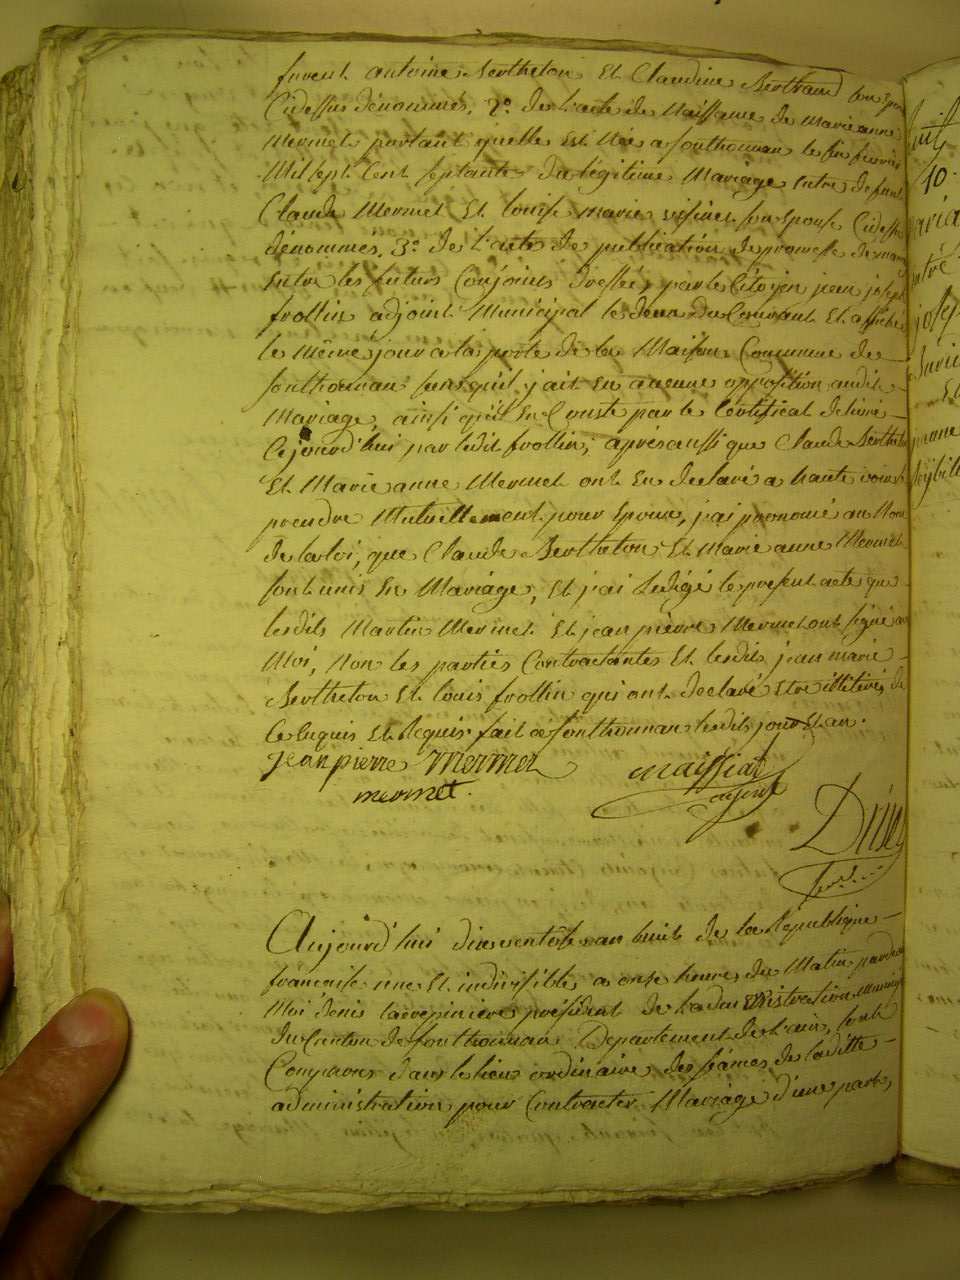 furent antoine Bertheton Et Claudine Bertrand
Cidessus dénommés, 2° de l'acte de Naissance de Marie anne
Mermet portant quelle Est Née a songthonnax le six fevrier
Mil sept Cent septante du légitime Mariage Entre defunt
Claude Mermet Et louise marie son Epouse Cidessus
dénommés, 3° de l'acte de publication de promesse de mariage
Entre les futurs Conjoints dressé par le Citoyen jean joseph
frollin adjoint Municipal le deux du Courant Et affiché
le Même jour a la porte de la Maison Commune de
songthonnax sans qu'il y ait Eu aucune opposition audit
Mariage ainsi qu'il En Conste par le Certificat delivré
Cejourd'hui par ledit frollin, après aussi que Claude Bertheton
Et Marie anne Mermet ont Eu declaré a haute voix se
prendre Mutuellement pour Epoux, j'ai prononcé au Nom
de la loi, que Claude Bertheton Et Marie anne Mermet
sont unis En Mariage, Et j'ai Rédigé le present acte que
lesdits Martin Mermet Et jean pierre Mermet ont signé avec
Moi, Non les parties Contractantes Et lesdits jean marie
Bertheton Et louis frollin qui ont declaré Etre illitérés de
Ce Enquis Et Requis. fait a songthonnax lesdits jour Et an.
jean pierre mermet maissiat
mermet. agent
Aujourd'hui dix ventôse an huit de la République
françoise une Et indivisible, a onze heures du Matin pardevant
Moi denis president de Ladministration Municipale
du Canton de songthonnax Departement de l'ain, sont
Comparus dans le lieu ordinaire des séances de laditte
administration pour Contracter Mariage d'une part,
10.
Entre
joseph